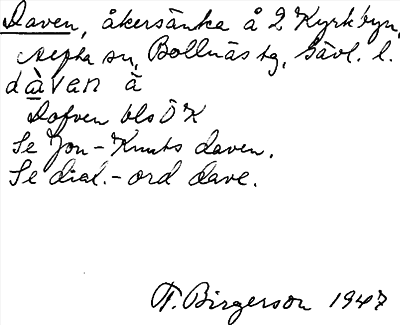 Daven, åkersänka å 2 Kyrkbyn,
Alfta sn, Bollnäs tg, Gävl. l.
dàvan à
Dofven bls ÖK
Se Jon-Knuts daven.
Se dial.-ord dave.
F. Birgerson 1947